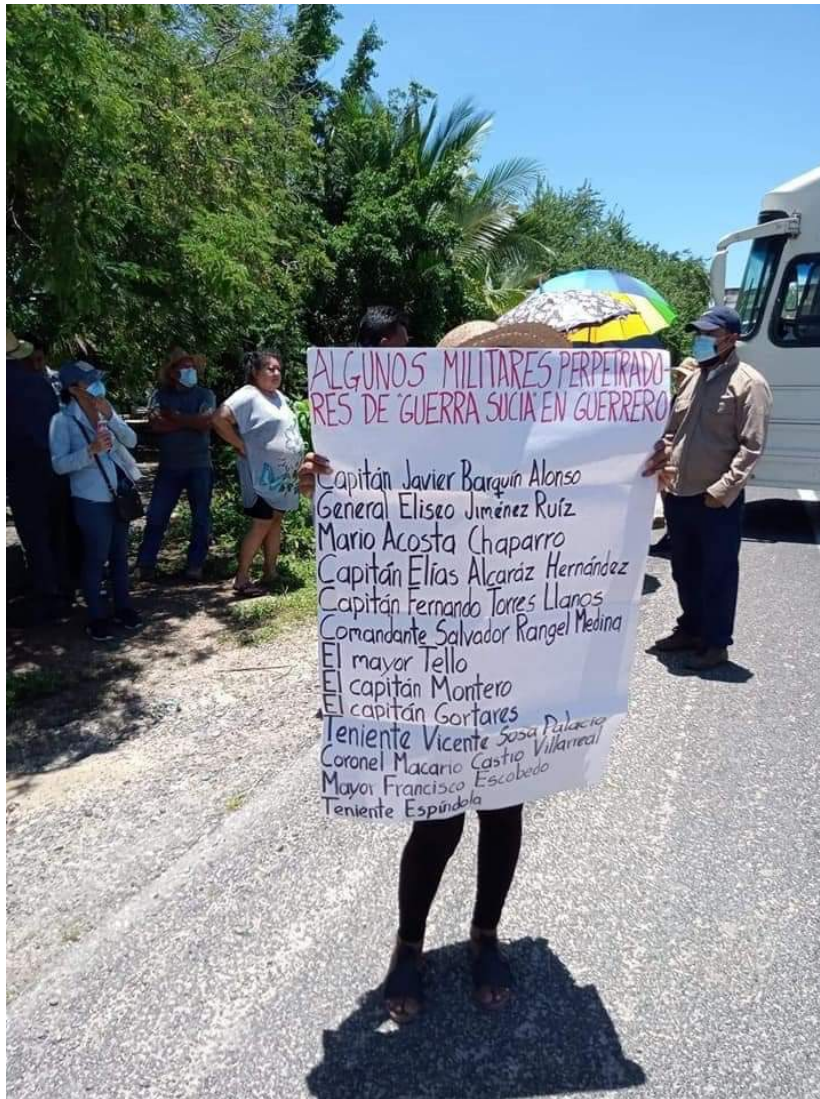 ALGUNOS MILITARES PERPETRADO-
RES DE "GUERRA SUCIA" EN GUERRERO
Capitán Javier Barquín Alonso
General Eliseo Jiménez Ruíz
Mario Acosta Chaparro
Capitán Elías Alcaráz Hernández
Capitán Fernando Torres Llanos
Comandante Salvador Rangel Medina
El mayor Tello
El capitán Montero
El capitán Gortares
Teniente Vicente Sosa Palacio
Coronel Macario Castro Villarreal
Mayor Francisco Escobedo
Teniente Espíndola